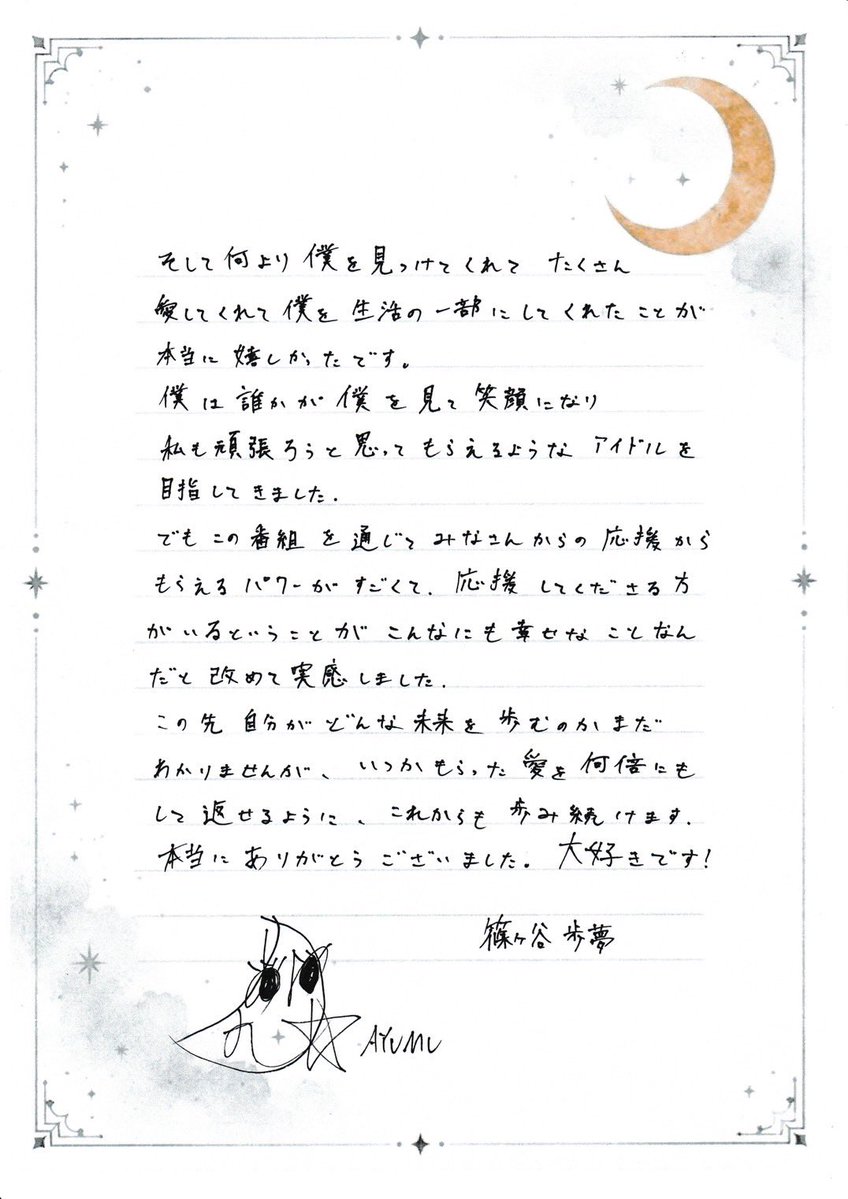 そして何より僕を見つけてくれて たくさん
愛してくれて僕を生活の一部にしてくれたことが
本当に嬉しかったです。
僕は誰かが僕を見て笑顔になり
私も頑張ろうと思ってもらえるようなアイドルを
目指してきました.
でもこの番組を通じてみなさんからの応援から
もらえるパワーがすごくて、応援してくださる方
がいるということがこんなにも幸せなことなん
だと改めて実感しました.
この先自分がどんな未来を歩むのかまだ
わかりませんが、いつかもらった愛を何倍にも
して返せるように、これからも歩み続けます.
本当にありがとうございました。大好きです!
篠ヶ谷歩夢
AYUMU